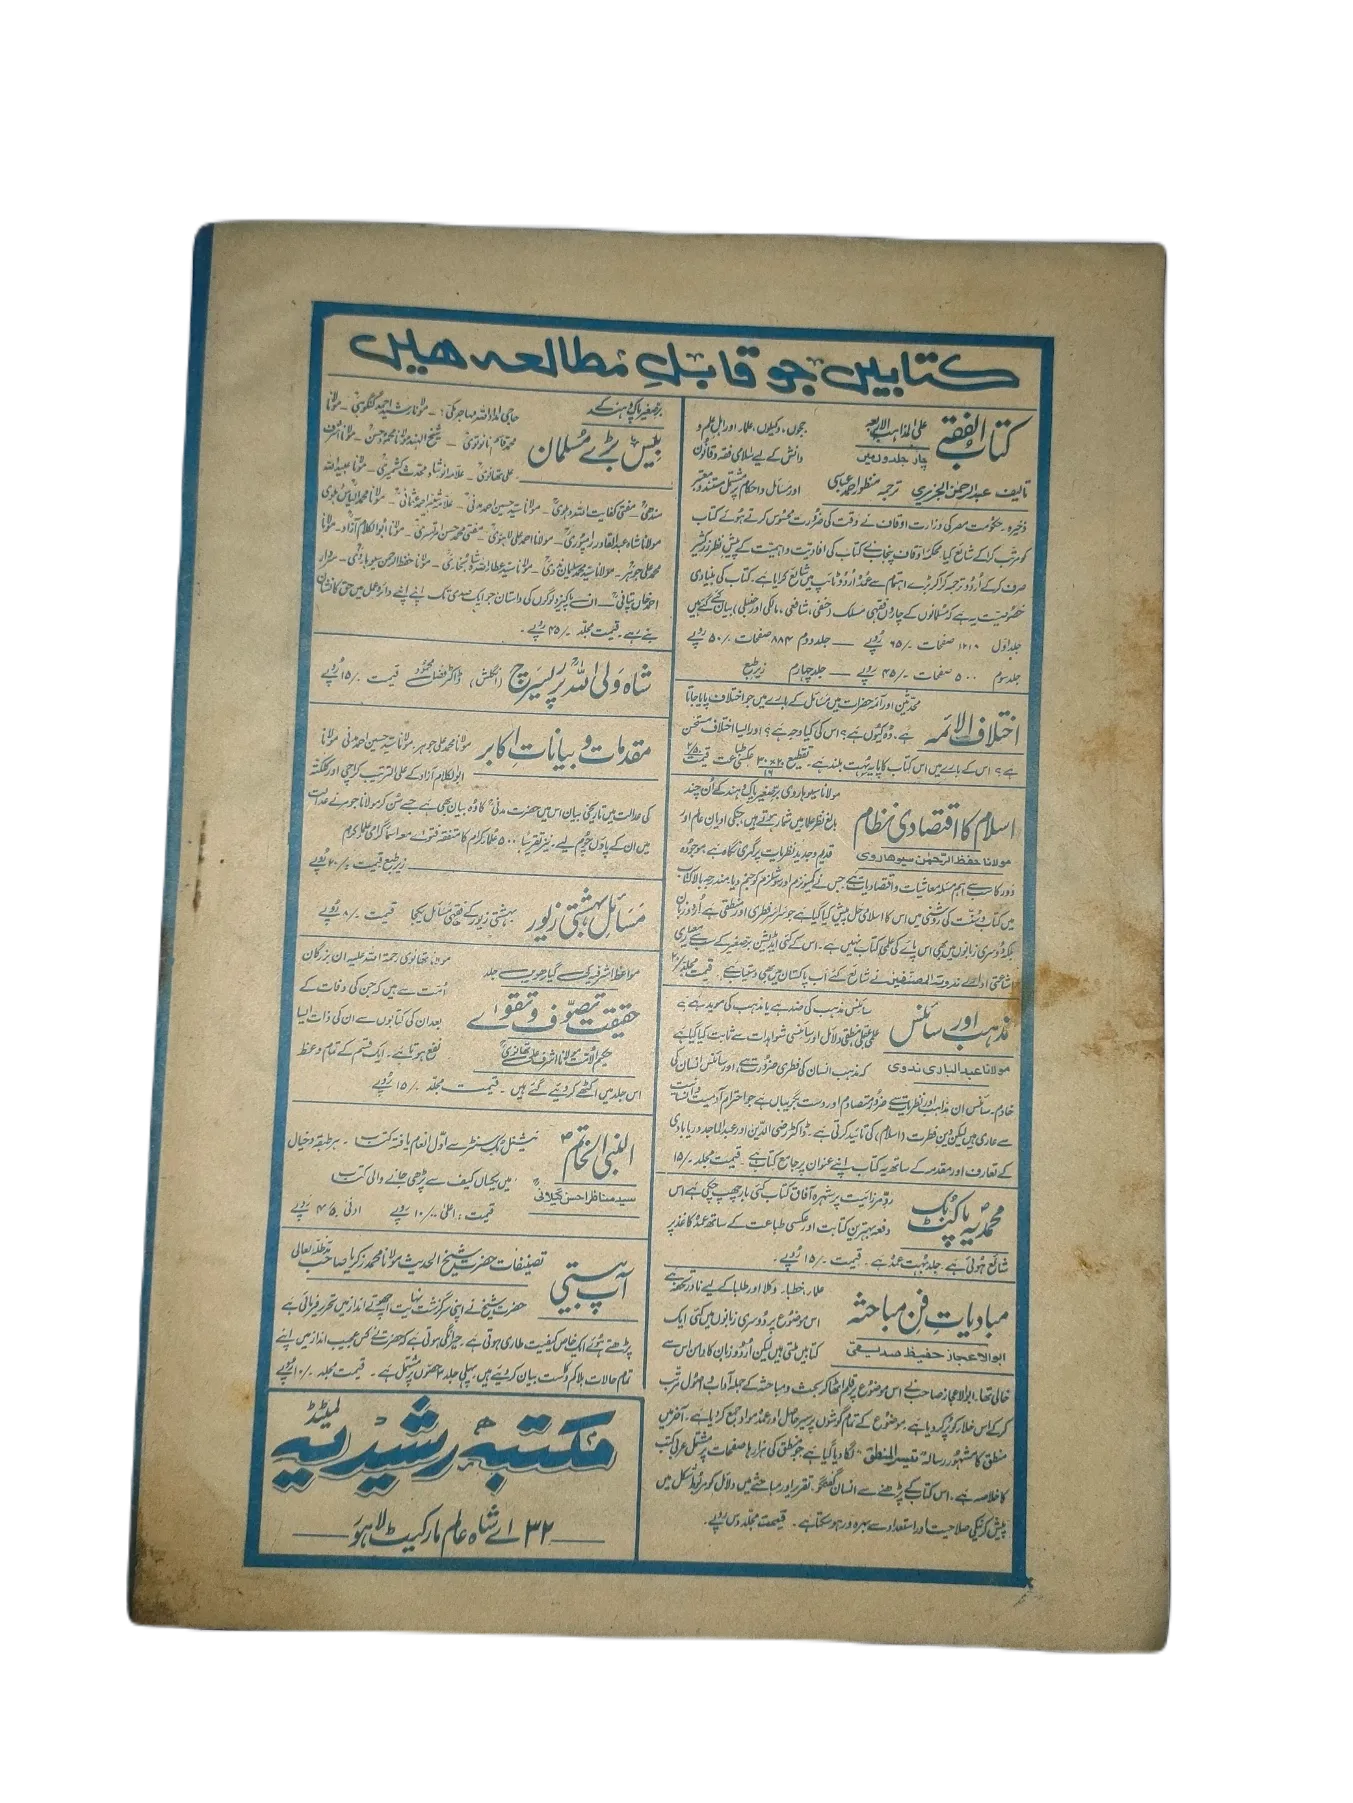 کتابیں جو قابلِ مطالعہ ہیں
کتاب الفقہ
علی المذاہب الاربعہ
چار جلدوں میں
تالیف عبدالرحمٰن الجزیری ترجمہ منظور احمد عباسی
ججوں، وکیلوں، علماء اور اہلِ علم و
دانش کے لیے اسلامی فقہ و قانون
اور مسائل و احکام پر مشتمل مستند و معتبر
ذخیرہ۔ حکومت مصر کی وزارت اوقاف نے وقت کی ضرورت محسوس کرتے ہوئے کتاب
کو مرتب کرا کے شائع کیا۔ محکمہ اوقاف پنجاب نے کتاب کی افادیت و اہمیت کے پیشِ نظر زرِ کثیر
صرف کر کے اُردو ترجمہ کرا کر بڑے اہتمام سے عمدہ اُردو ٹائپ میں شائع کرایا ہے۔ کتاب کی بنیادی
خصوصیت یہ ہے کہ مسلمانوں کے چاروں فقہی مسلک (حنفی، شافعی، مالکی اور حنبلی) بیان کئے گئے ہیں
جلد اول ۱۲۱۰ صفحات ۶۵/۰ روپے — جلد دوم ۸۸۴ صفحات ۵۰/۰ روپے
جلد سوم ۵۰۰ صفحات ۴۵/۰ روپے — جلد چہارم زیرِ طبع
اختلاف الائمہ
محدثین اور آئمہ حضرات میں مسائل کے بارے میں جو اختلاف پایا جاتا
ہے، وہ کیوں ہے؟ اس کی کیا وجہ ہے؟ اور ایسا اختلاف مستحسن
ہے؟ اس کے بارے میں اس کتاب کا پایہ بہت بلند ہے۔ تقطیع ۲۰×۳۰/۱۶ عکسی طباعت قیمت
اسلام کا اقتصادی نظام
مولانا حفظ الرحمٰن سیوہاروی
مولانا سیوہاروی برصغیر پاک و ہند کے اُن چند
بالغ نظر علما میں شمار ہوتے ہیں، جنکی ادیان عالم اور
قدیم و جدید نظریات پر گہری نگاہ ہے، موجودہ
دور کا سب سے اہم مسئلہ معاشیات و اقتصادیات ہے جس نے کمیونزم اور سوشلزم کو جنم دیا، مندرجہ بالا کتاب
میں کتاب و سنت کی روشنی میں اس کا اسلامی حل پیش کیا گیا ہے جو سراسر فطری اور منطقی ہے اُردو زبان
بلکہ دوسری زبانوں میں بھی اس پائے کی علمی کتاب نہیں ہے۔ اس کے کئی ایڈیشن برصغیر کے سب سے معیاری
اشاعتی ادارے ندوۃ المصنفین نے شائع کئے اب پاکستان میں بھی دستیاب ہے۔ قیمت مجلد ۲۰/۰
مذہب اور سائنس
مولانا عبدالباری ندوی
سائنس مذہب کی ضد ہے یا مذہب کی موید ہے؟
علمی عقلی منطقی دلائل اور سائنسی شواہدات سے ثابت کیا گیا ہے
کہ مذہب انسان کی فطری ضرورت ہے، اور سائنس انسان کی
خادم۔ سائنس ان مذاہب اور نظریات سے ضرور متصادم اور دست بگریباں ہے جو احترام آدمیت و انسانیت
سے عاری ہیں لیکن دین فطرت (اسلام) کی تائید کرتی ہے۔ ڈاکٹر رضی الدین اور عبدالماجد دریابادی
کے تعارف اور مقدمہ کے ساتھ یہ کتاب اپنے عنوان پر جامع کتاب ہے۔ قیمت مجلد ۱۵/۰
محمدیہ پاکٹ بک
ردِّ مرزائیت پر شہرہ آفاق کتاب کئی بار چھپ چکی ہے اس
دفعہ بہترین کتابت اور عکسی طباعت کے ساتھ عمدہ کاغذ پر
شائع ہوئی ہے۔ جلد بہت عمدہ ہے۔ قیمت ۱۵/۰ روپے۔
مبادیاتِ فنِ مباحثہ
ابوالاعجاز حفیظ صدیقی
علماء، خطباء، وکلا اور طلبا کے لیے نادر تحفہ ہے
اس موضوع پر دوسری زبانوں میں کئی ایک
کتابیں ملتی ہیں لیکن اُردو زبان کا دامن اس سے
خالی تھا۔ ابوالاعجاز صاحب نے اس موضوع پر قلم اٹھا کر بحث و مباحثہ کے جملہ آداب و اصول مرتب
کر کے اس خلا کو پُر کر دیا ہے۔ موضوع کے تمام گوشوں پر سیر حاصل اور عمدہ مواد جمع کر دیا ہے۔ آخر میں
منطق کا مشہور رسالہ "تیسر المنطق" لگا دیا گیا ہے جو منطق کی ہزارہا صفحات پر مشتمل عربی کتب
کا خلاصہ ہے۔ اس کتاب کے پڑھنے سے انسان گفتگو، تقریر اور مباحثے میں دلائل کو مربوط شکل میں
پیش کرنے کی صلاحیت اور استعداد سے بہرہ ور ہو سکتا ہے۔ قیمت مجلد دس روپے۔
برصغیر پاک و ہند کے
بیس بڑے مسلمان
حاجی امداد اللہ مہاجر مکیؒ۔ مولانا رشید احمد گنگوہیؒ۔ مولانا
محمد قاسم نانوتویؒ۔ شیخ الہند مولانا محمود حسنؒ۔ مولانا اشرف
علی تھانویؒ۔ علامہ انور شاہ محدث کشمیریؒ۔ مولانا عبیداللہ
سندھیؒ۔ مفتی کفایت اللہ دہلویؒ۔ مولانا سید حسین احمد مدنیؒ۔ علامہ شبیر احمد عثمانیؒ۔ مولانا محمد الیاس دہلویؒ
مولانا شاہ عبدالقادر رائپوریؒ۔ مولانا احمد علی لاہوریؒ۔ مفتی محمد حسن امرتسریؒ۔ مولانا ابوالکلام آزادؒ۔ مولانا
محمد علی جوہرؒ۔ مولانا سید محمد سلیمان ندویؒ۔ مولانا سید عطا اللہ شاہ بخاریؒ۔ مولانا حفظ الرحمٰن سیوہارویؒ۔ سردار
احمد خاں پتافیؒ۔ ان پاکیزہ لوگوں کی داستان جو ایک صدی تک اپنے اپنے دائرہ عمل میں حق کا نشان
بنے رہے۔ قیمت مجلد ۴۵/۰ روپے۔
شاہ ولی اللہ پر ریسرچ (انگلش) ڈاکٹر فضل محمود قیمت ۱۵/۰ روپے
مقدمات و بیانات اکابر
مولانا محمد علی جوہر، مولانا سید حسین احمد مدنی، مولانا
ابوالکلام آزاد کے علی الترتیب کراچی اور کلکتہ
کی عدالت میں تاریخی بیان اس میں حضرت مدنیؒ کا وہ بیان بھی ہے جسے سن کر مولانا جوہر نے عدالت
میں ان کے پاؤں چوم لیے۔ نیز تقریباً ۵۰۰ علماء کرام کا متفقہ فتویٰ معہ اسماء گرامی علماء کرام
زیرِ طبع قیمت ۲۰/۰ روپے
مسائل بہشتی زیور بہشتی زیور کے فقہی مسائل یکجا قیمت ۸/۰ روپے
مواعظ اشرفیہ کی گیارھویں جلد
حقیقت تصوّف و تقویٰ
حکیم الامت مولانا اشرف علی تھانویؒ
مولانا تھانوی رحمۃ اللہ علیہ ان بزرگان
امت سے ہیں کہ جن کی وفات کے
بعد ان کی کتابوں سے ان کی ذات ایسا
نفع ہوتا ہے۔ ایک قسم کے تمام وعظ
اس جلد میں اکٹھے کر دیئے گئے ہیں۔ قیمت مجلد ۱۵/۰ روپے
النبی الخاتم ؐ
سید مناظر احسن گیلانیؒ
نیشنل بک سنٹر سے اوّل انعام یافتہ کتب۔ ہر طبقہ و خیال
میں یکساں کیف سے پڑھی جانے والی کتب
قیمت: اعلیٰ ۱۰/۰۰ روپے ادنیٰ ۴/۵۰ روپے
آپ بیتی
تصنیفات حضرت شیخ الحدیث مولانا محمد زکریا صاحب مدظلہ تعالی
حضرت شیخ نے اپنی سرگزشت نہایت اچھوتے انداز میں تحریر فرمائی ہے
پڑھتے ہوئے ایک خاص کیفیت طاری ہوتی ہے۔ حیرانگی ہوتی ہے کہ حضرت نے کس عجیب انداز میں اپنے
تمام حالات بلا کم و کاست بیان کر دیئے ہیں، پہلی جلد ۲ حصوں پر مشتمل ہے۔ قیمت مجلد ۱۰/۰ روپے
مکتبہ رشیدیہ لمیٹڈ
۳۲ اے شاہ عالم مارکیٹ لاہور